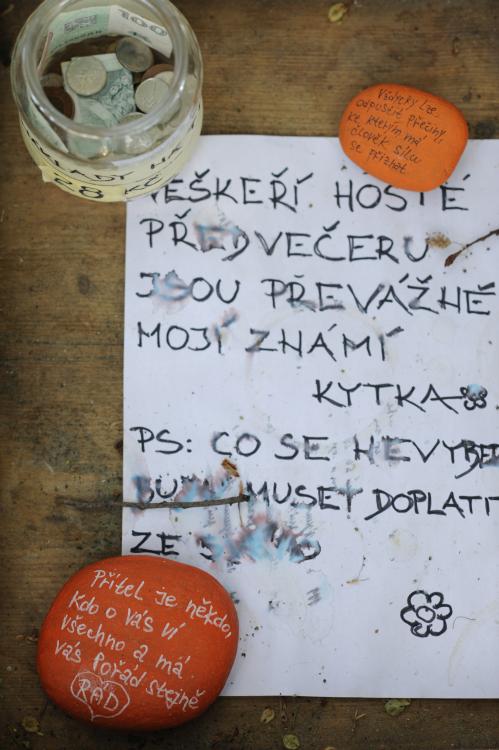 100
28 KČ
Vždycky lze
odpustit přečiny,
ke kterým má
člověk sílu
se přiznat
VEŠKEŘÍ HOSTÉ
PŘEDVEČERU
JSOU PŘEVÁŽNĚ
MOJÍ ZNÁMÍ
KYTKA
PS: CO SE NEVYBERE
BUDU MUSET DOPLATIT
ZE
Přítel je někdo,
Kdo o vás ví
všechno a má
vás Pořád stejně
RÁD